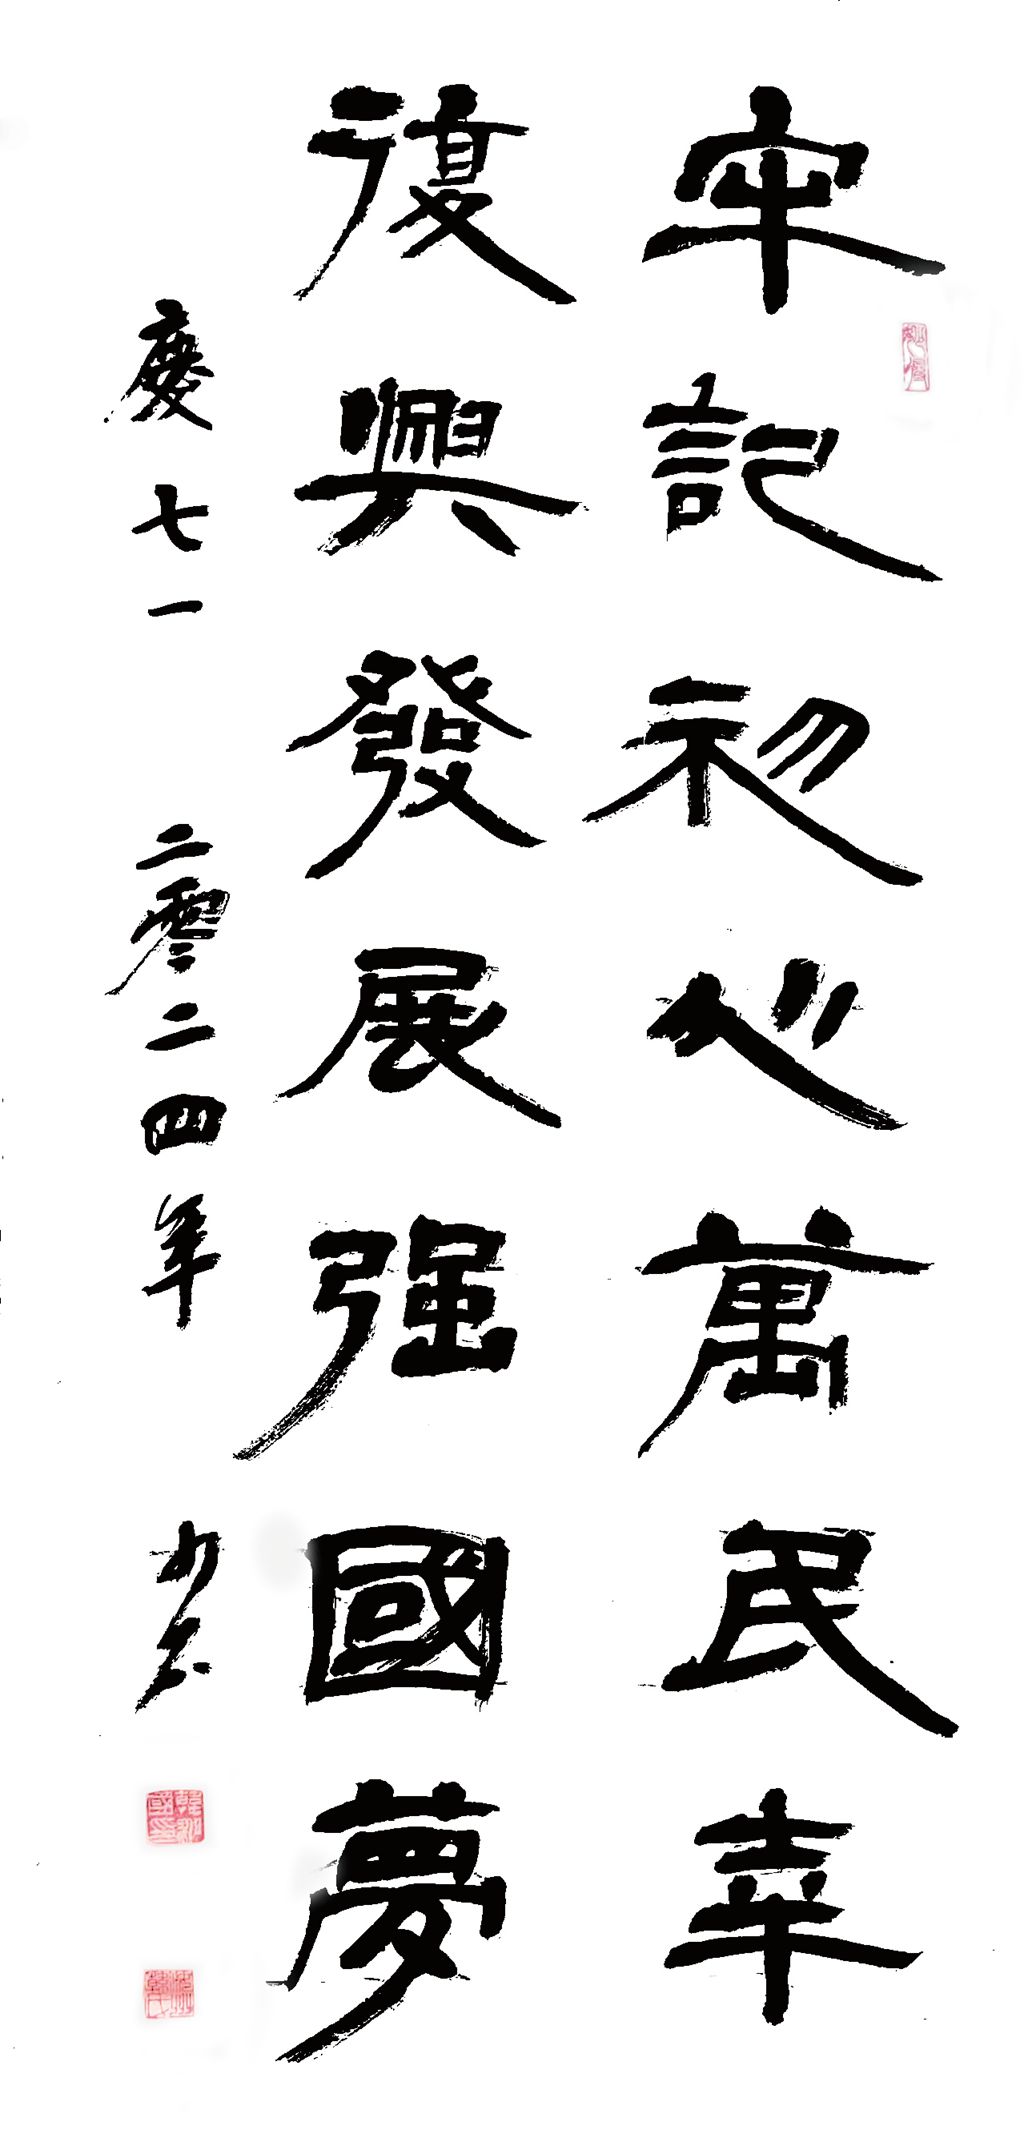 牢記初心萬民幸
復興發展强國夢
慶七一 二零二四年